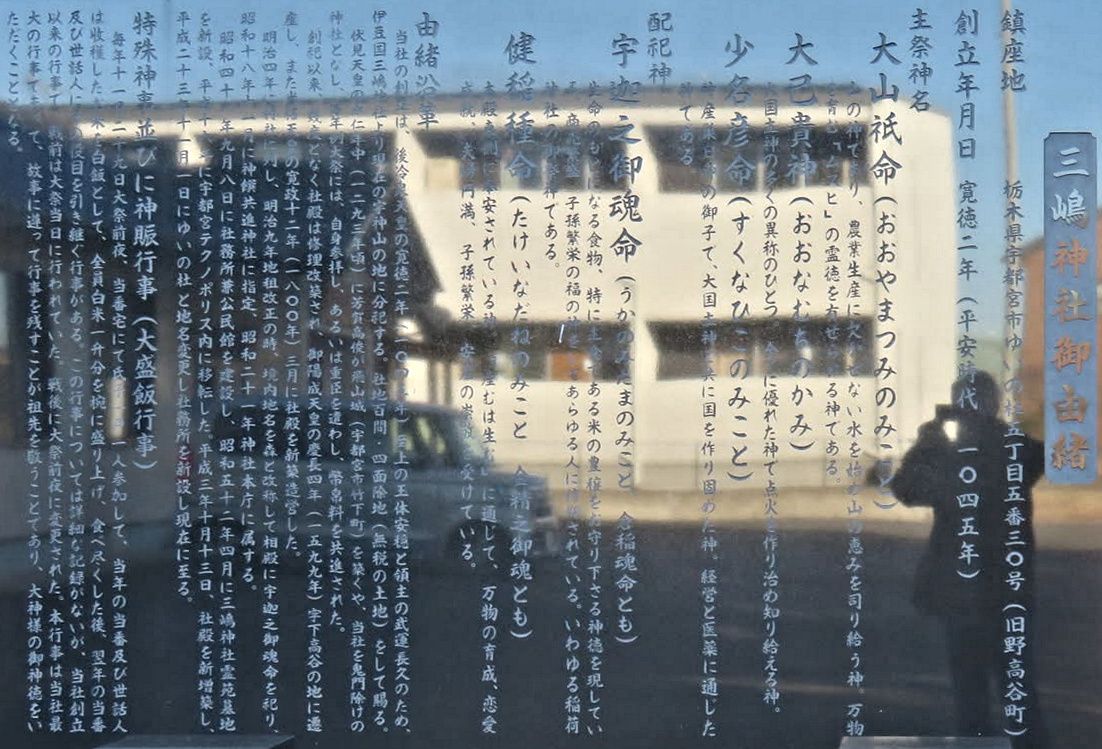 三嶋神社御由緒
鎮座地 栃木県宇都宮市ゆいの杜五丁目五番三〇号（旧野高谷町）
創立年月日 寛徳二年（平安時代 一〇四五年）
主祭神名
大山祇命（おおやまつみのみこと）
山の神であり、農業生産に欠かせない水を始め山の恵みを司り給う神。万物
を育む「ムスビ」の霊徳を有せられる神である。
大己貴神（おおなむちのかみ）
大国主神の多くの異称のひとつ。に優れた神で点火を作り治め知り給える神。
少名彦命（すくなひこのみこと）
神産巣日神の御子で、大国主神と共に国を作り固めた神。経営と医薬に通じた
神である。
配祀神
宇迦之御魂命（うかのみたまのみこと、倉稲魂命とも）
生命のもとになる食物、特に主食である米の豊穣をお守り下さる神徳を現してい
子孫繁栄の福の神としてあらゆる人に信仰されている。いわゆる稲荷
神社の御祭神である。
健稲種命（たけいなだねのみこと 金精之御魂とも）
本殿奥側に奉安されている神。産むは生むに通じて、万物の育成、恋愛
成就、夫婦円満、子孫繁栄、安産の崇敬を受けている。
由緒沿革
当社の創立は、後冷泉天皇の寛徳二年（一〇四五年）、上の玉体安穏と領主の武運長久のため、
伊豆国三嶋神社より現在の神山の地に分祀する。社地百間・四面除地（無税の土地）をして賜る。
伏見天皇の永仁年中（一二九三年頃）に芳賀高俊が飛山城（宇都宮市竹下町）を築くや、当社を鬼門除けの
神社となし、毎年例祭には、自身参拝し、あるいは重臣を遣わし、常帛料を共進された。
創祀以来、数度となく社殿は修理改築され、御陽成天皇の慶長四年（一五九九年）字下高谷の地に遷
座し、また光格天皇の寛政十二年（一八〇〇年）三月に社殿を新築造営した。
明治四年村社に列し、明治九年地租改正の時、境内地名を森と改称して相殿に宇迦之御魂命を祀り、
昭和十八年一月に神饌共進神社に指定、昭和二十一年神社本庁に属する。
昭和四十年九月八日に社務所兼公民館を建設し、昭和五十二年四月に三嶋神社霊苑墓地
を新設、平成に宇都宮テクノポリス内に移転した。平成二年十月十三日、社殿を新増築し、
平成二十三年十一月一日にゆいの杜と地名変更し社務所を新設し現在に至る。
特殊神事並びに神賑行事（大盛飯行事）
毎年十一月二十九日大祭前夜、当番宅にて氏子一人参加して、当年の当番及び世話人
は収穫した新米を白飯として、全員白米一升分を椀に盛り上げ、食べ尽くした後、翌年の当番
及び世話人にその役目を引き継ぐ行事がある。この行事については詳細な記録がないが、当社創立
以来の行事で、戦前は大祭当日に行われていた。戦後に大祭前夜に変更された。本行事は当社最
大の行事であって、故事に遵って行事を残すことが祖先を敬うことであり、大神様の御神徳をい
ただくことになる。